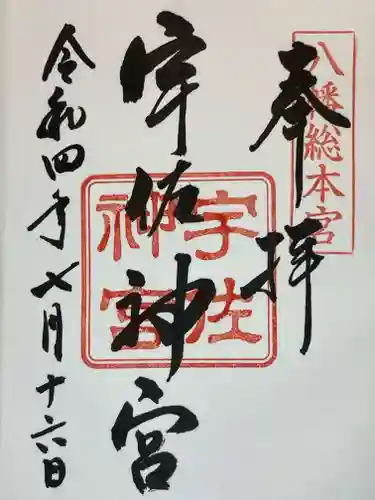 奉拝
八幡総本宮
宇佐神宮
宇佐
神宮
令和四年七月十六日